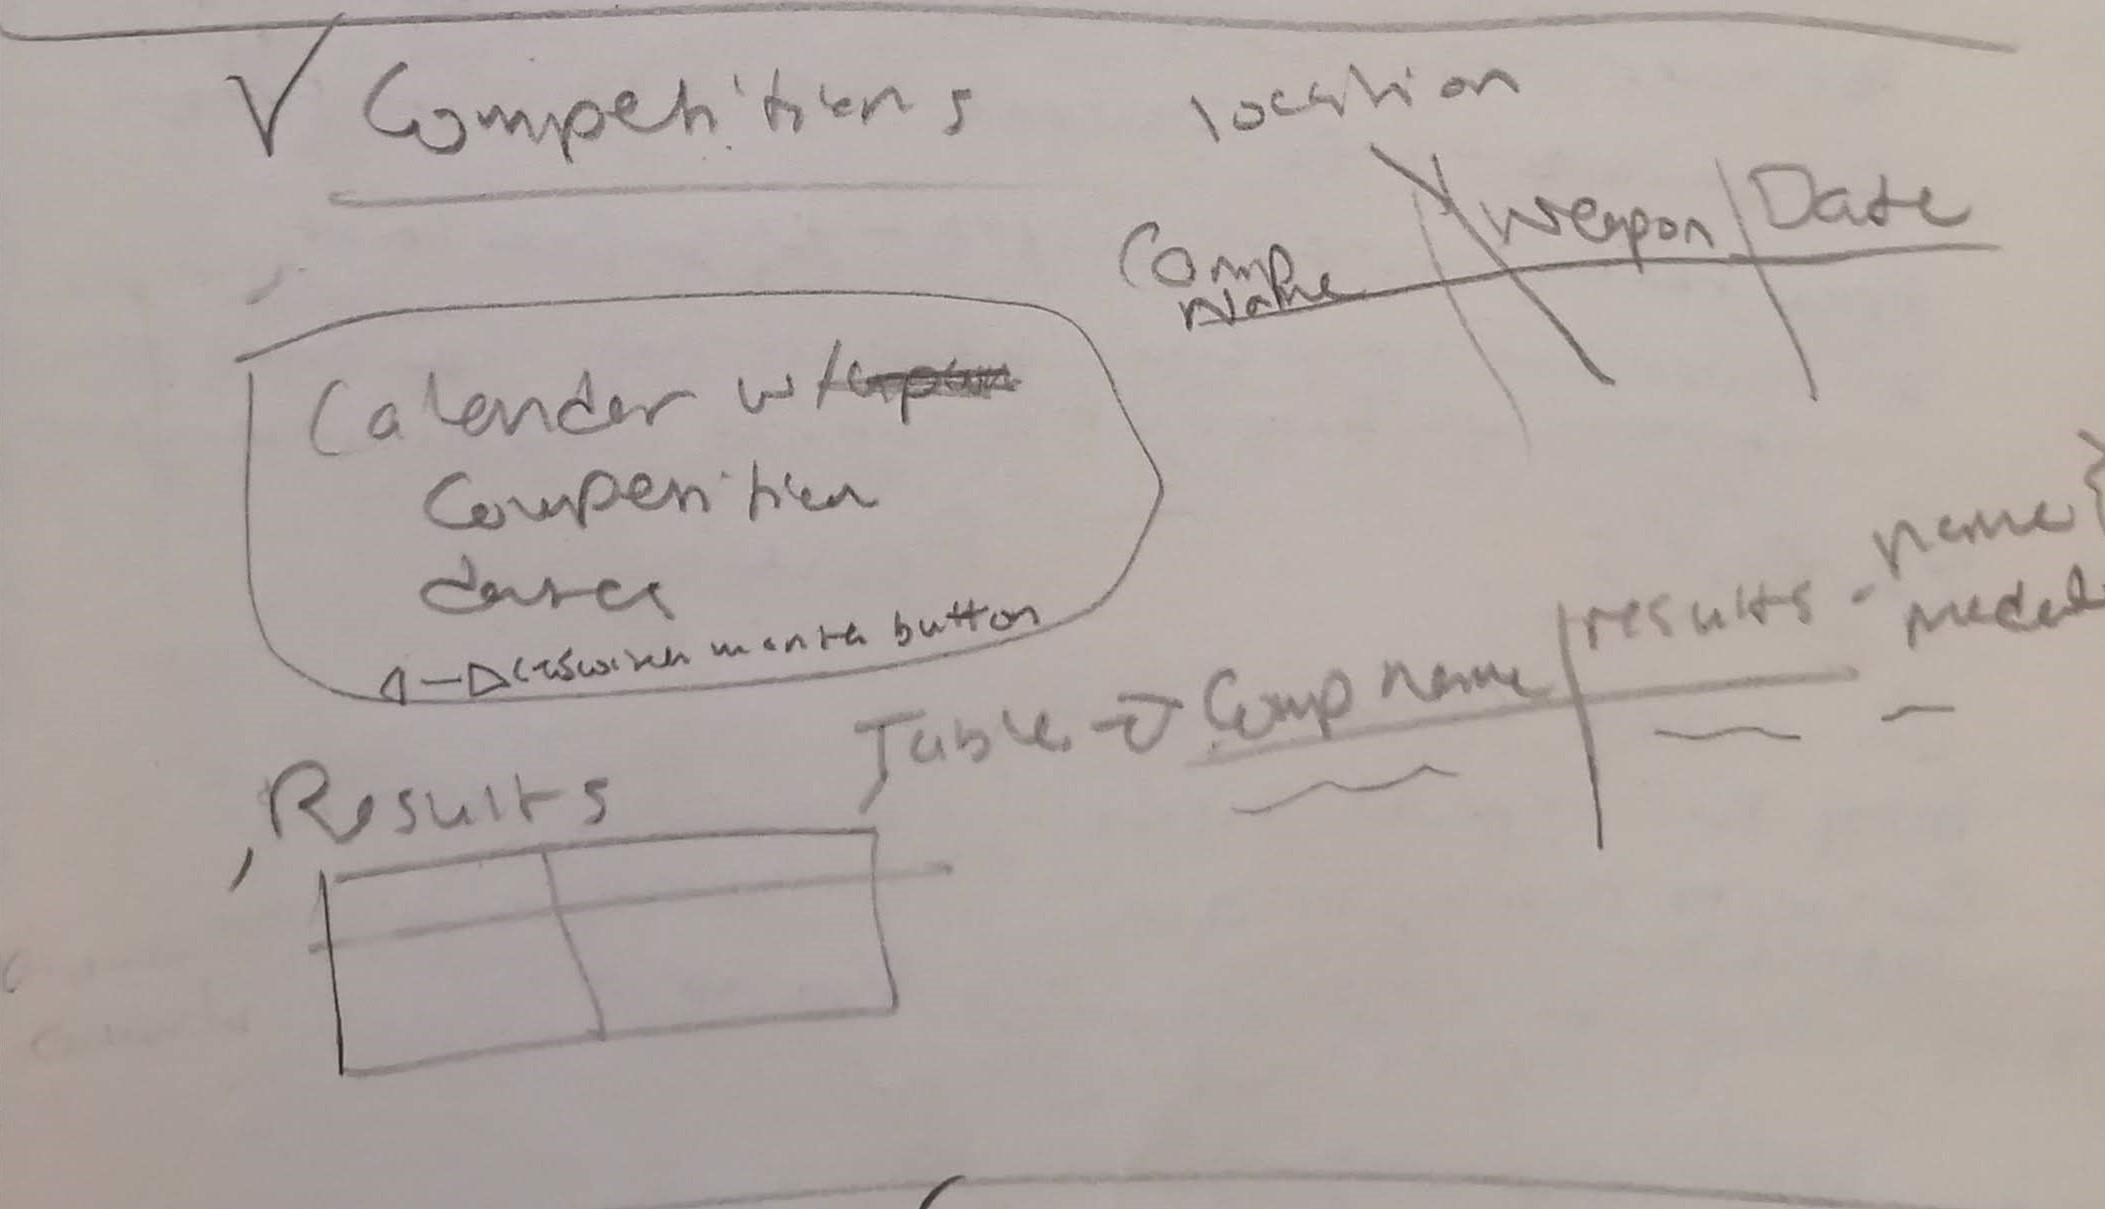 √ Competitions
location
Comp Name | Weapon | Date
Calender w/
Competition
dates
switch month button
Results
Table → Comp name | results - name
medal